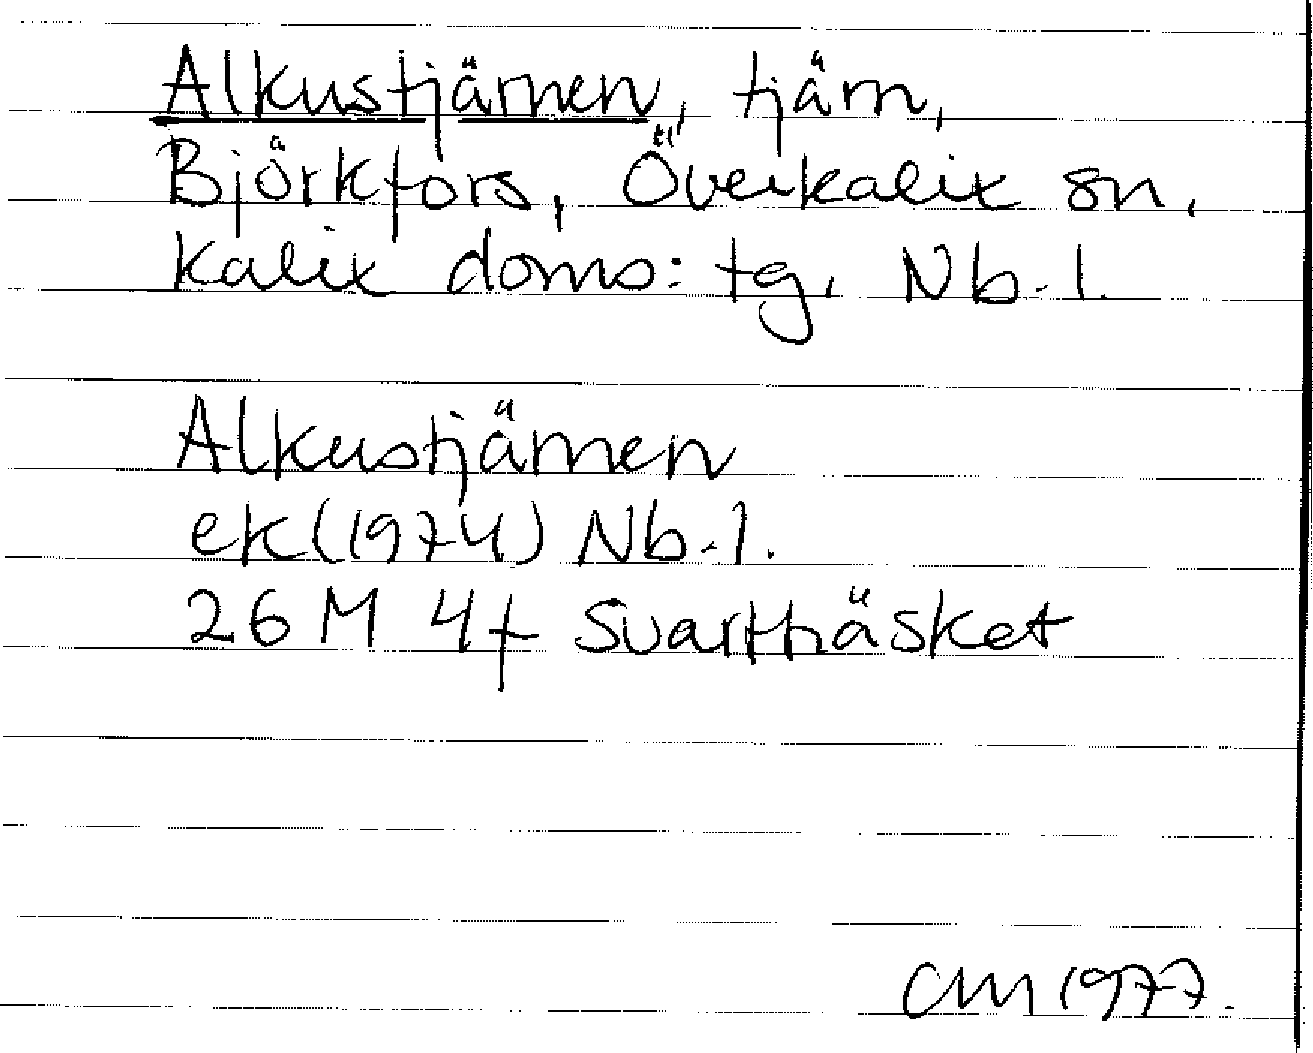 Alkustjärnen, tjärn,
Björkfors, Överkalix sn,
Kalix doms: tg. Nb. l.
Alkustjärnen
ek (1974) Nb. l.
26 M 4f Svartträsket
CM 1977.